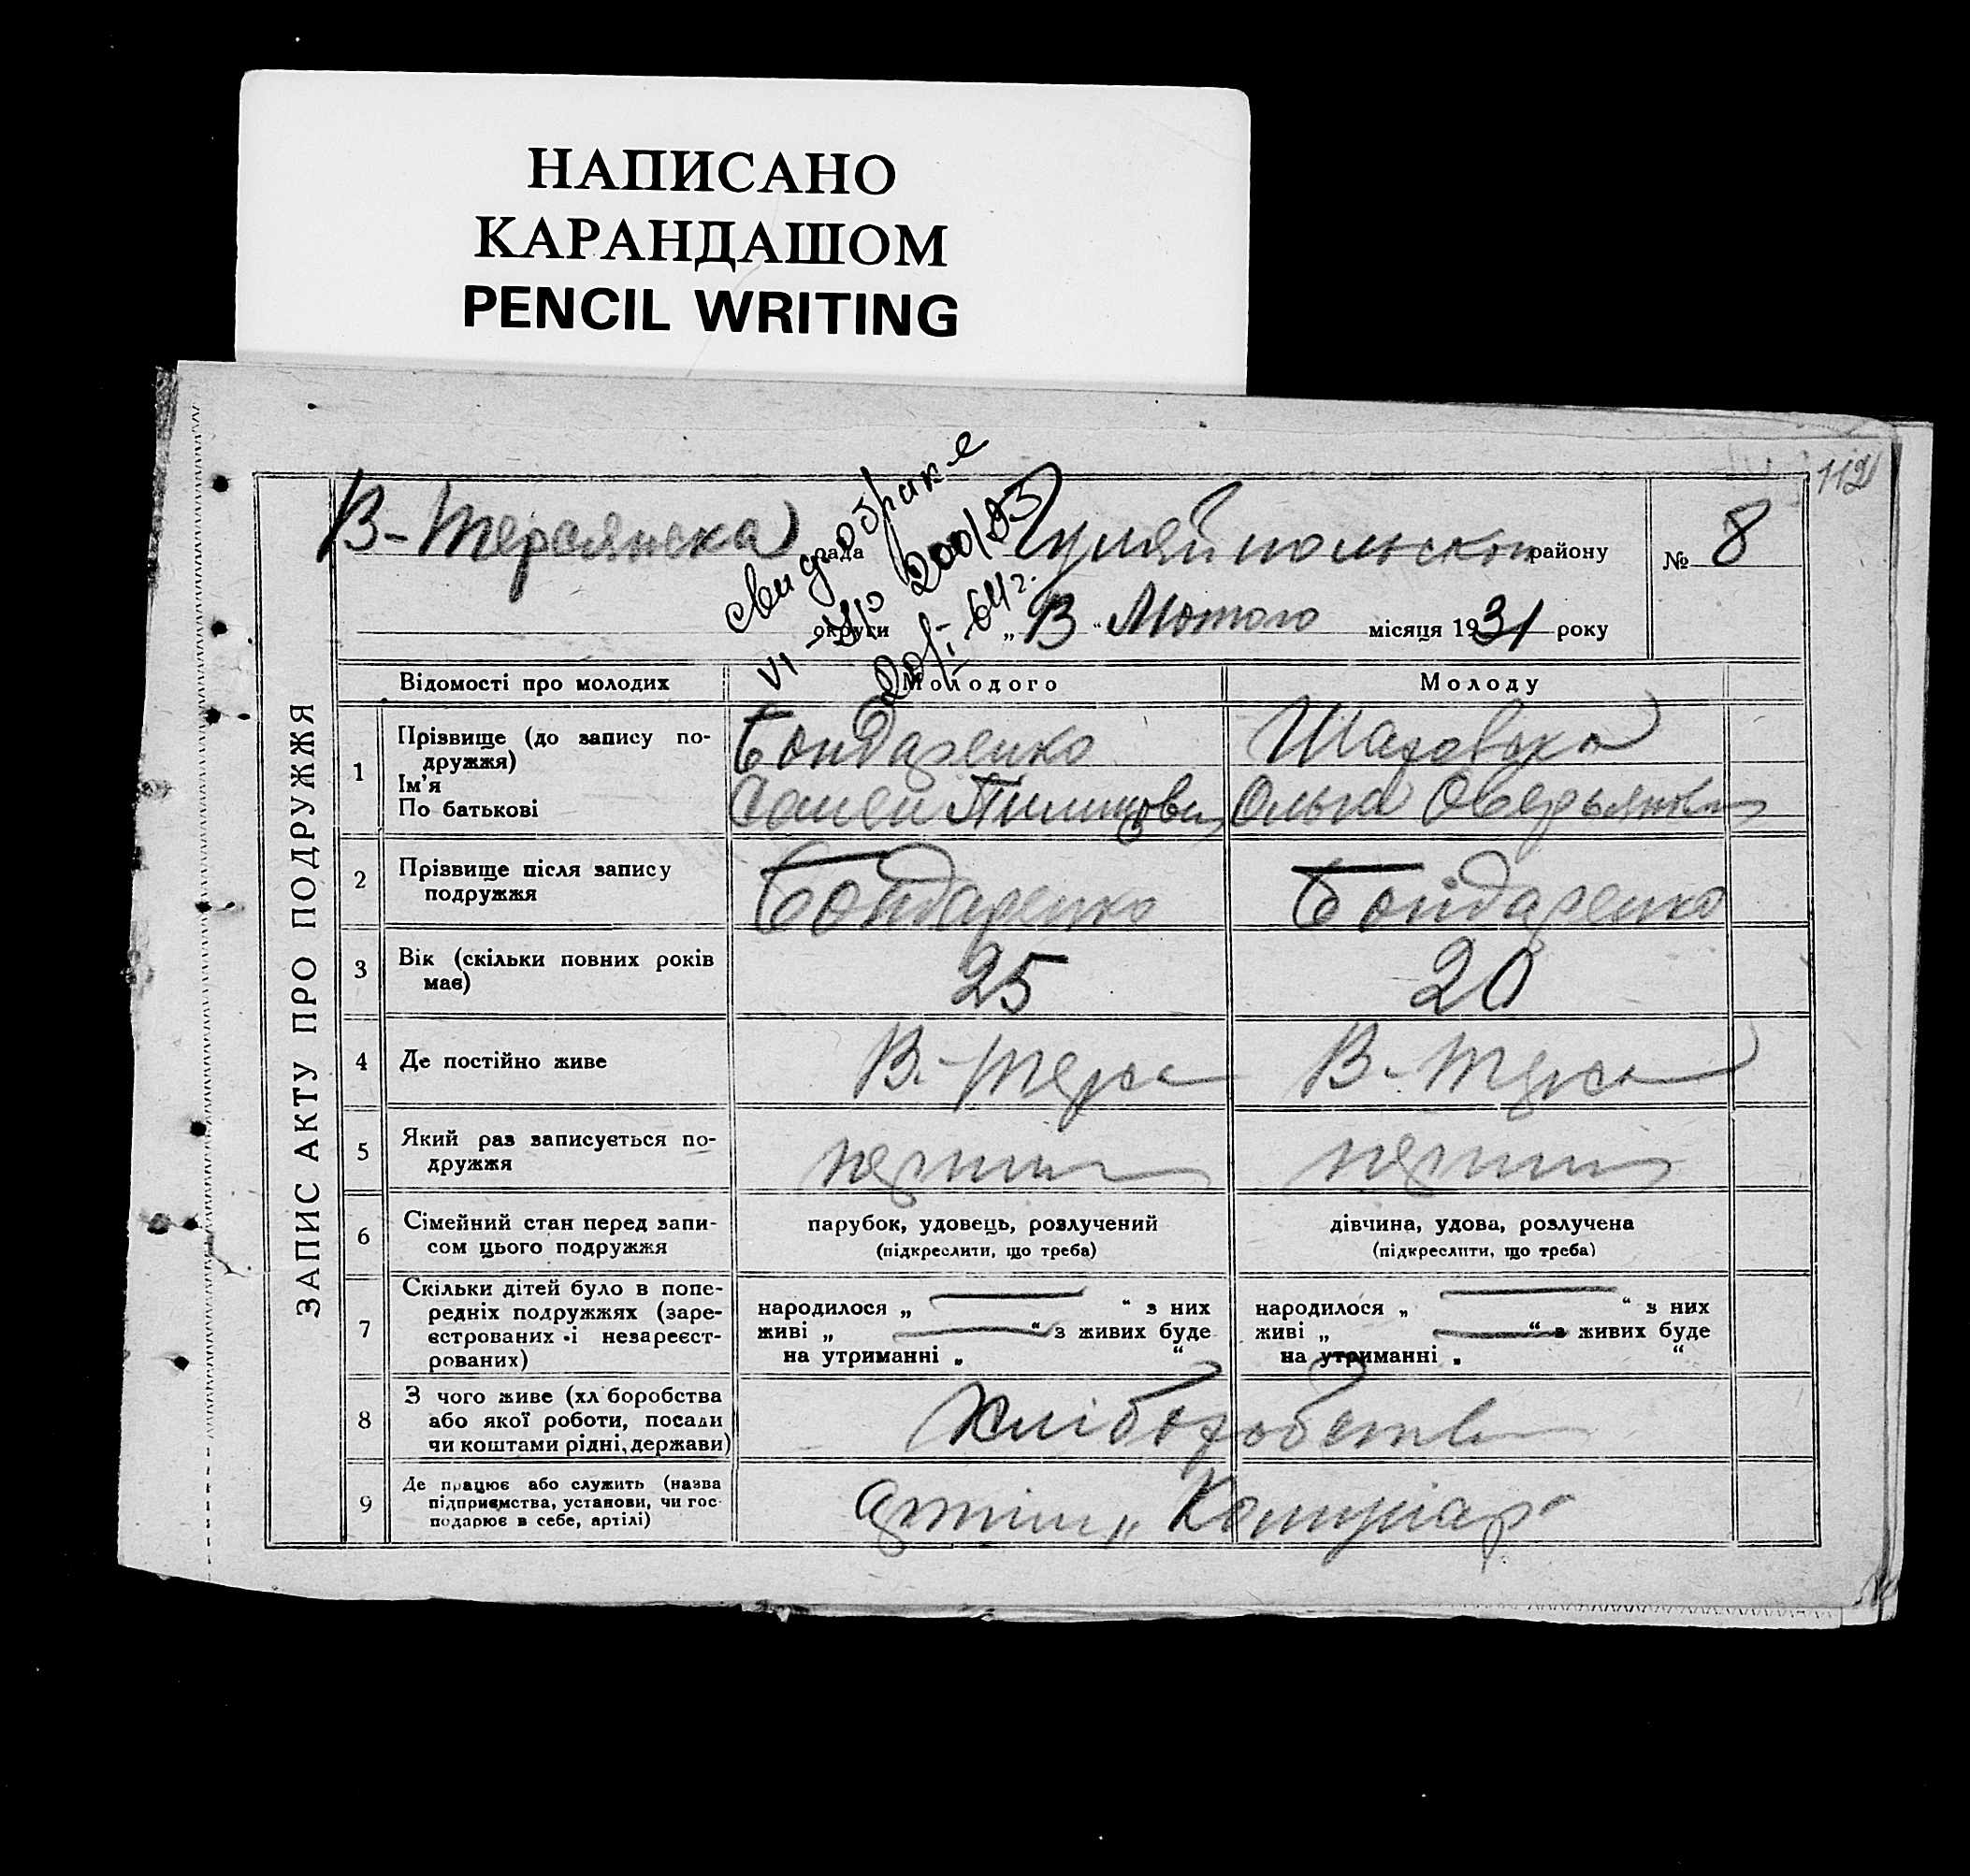 НАПИСАНО
КАРАНДАШОМ
PENCIL WRITING
112
В-Терсянська рада Гуляйпольскои району № 8
округи „13“ Лютого місяця 1931 року
свид о браке
200183
20/I-64 г.
ЗАПИС АКТУ ПРО ПОДРУЖЖЯ
Відомості про молодих Молодого Молоду
1 Прізвище (до запису по-
дружжя) Бондаренко Шаховська
Ім'я
По батькові Ольга Оверьяновн
2 Прізвище після запису
подружжя Бондаренко Бондаренко
3 Вік (скільки повних років
має) 25 20
4 Де постійно живе В-Терса В-Терса
5 Який раз записується по-
дружжя перший перший
6 Сімейний стан перед запи-
сом цього подружжя парубок, удовець, розлучений дівчина, удова, розлучена
(підкреслити, що треба) (підкреслити, що треба)
7 Скільки дітей було в попе-
редніх подружжях (заре-
єстрованих і незареєст-
рованих)
народилося „ “ з них народилося „ “ з них
живі „ “ з живих буде живі „ “ з живих буде
на утриманні „ “ на утриманні „ “
8 З чого живе (хл боробства
або якої роботи, посади
чи коштами рідні, держави) Хліборобства
9 Де працює або служить (назва
підприємства, установи, чи гос-
подарює в себе, артілі) артіль „